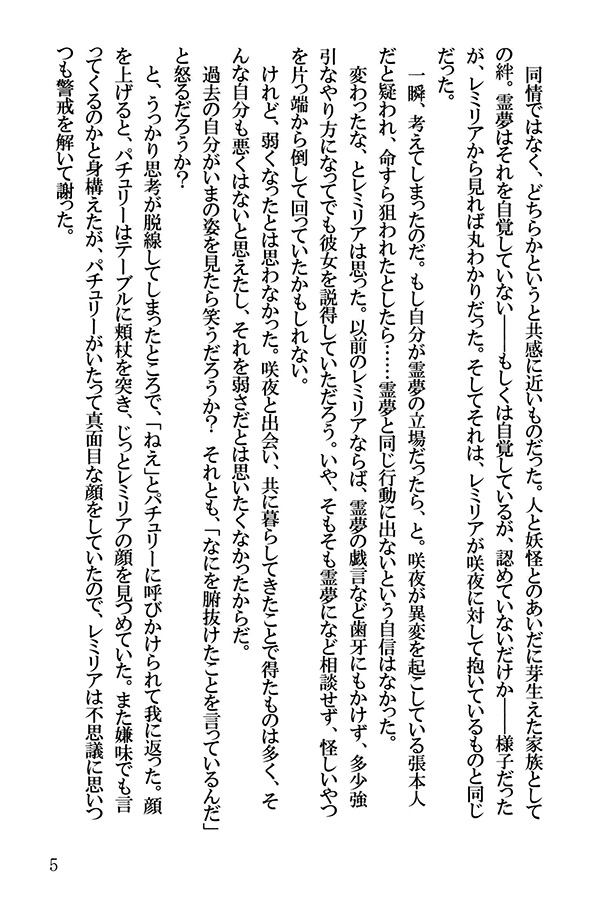 同情ではなく、どちらかというと共感に近いものだった。人と妖怪とのあいだに芽生えた家族として
の絆。霊夢はそれを自覚していない――もしくは自覚しているが、認めていないだけか――様子だった
が、レミリアから見れば丸わかりだった。そしてそれは、レミリアが咲夜に対して抱いているものと同じ
だった。
　一瞬、考えてしまったのだ。もし自分が霊夢の立場だったら、と。咲夜が異変を起こしている張本人
だと疑われ、命すら狙われたとしたら……霊夢と同じ行動に出ないという自信はなかった。
　変わったな、とレミリアは思った。以前のレミリアならば、霊夢の戯言など歯牙にもかけず、多少強
引なやり方になってでも彼女を説得していただろう。いや、そもそも霊夢になど相談せず、怪しいやつ
を片っ端から倒して回っていたかもしれない。
　けれど、弱くなったとは思わなかった。咲夜と出会い、共に暮らしてきたことで得たものは多く、そ
んな自分も悪くはないと思えたし、それを弱さだとは思いたくなかったからだ。
　過去の自分がいまの姿を見たら笑うだろうか？　それとも、「なにを腑抜けたことを言っているんだ」
と怒るだろうか？
　と、うっかり思考が脱線してしまったところで、「ねえ」とパチュリーに呼びかけられて我に返った。顔
を上げると、パチュリーはテーブルに頬杖を突き、じっとレミリアの顔を見つめていた。また嫌味でも言
ってくるのかと身構えたが、パチュリーがいたって真面目な顔をしていたので、レミリアは不思議に思いつ
つも警戒を解いて謝った。
5